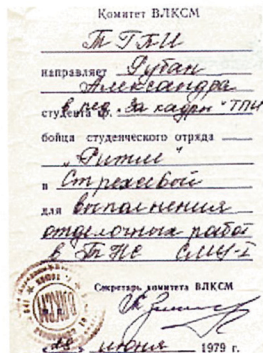 Комитет ВЛКСМ
ТГПИ
направляет Рубан
Александра
в ред. "За кадры" ТПИ
студента гр.
бойца студенческого отряда
"Ритм"
в Стрежевой
для выполнения
отделочных работ
в СМУ-1
Секретарь комитета ВЛКСМ
июня 1979 г.